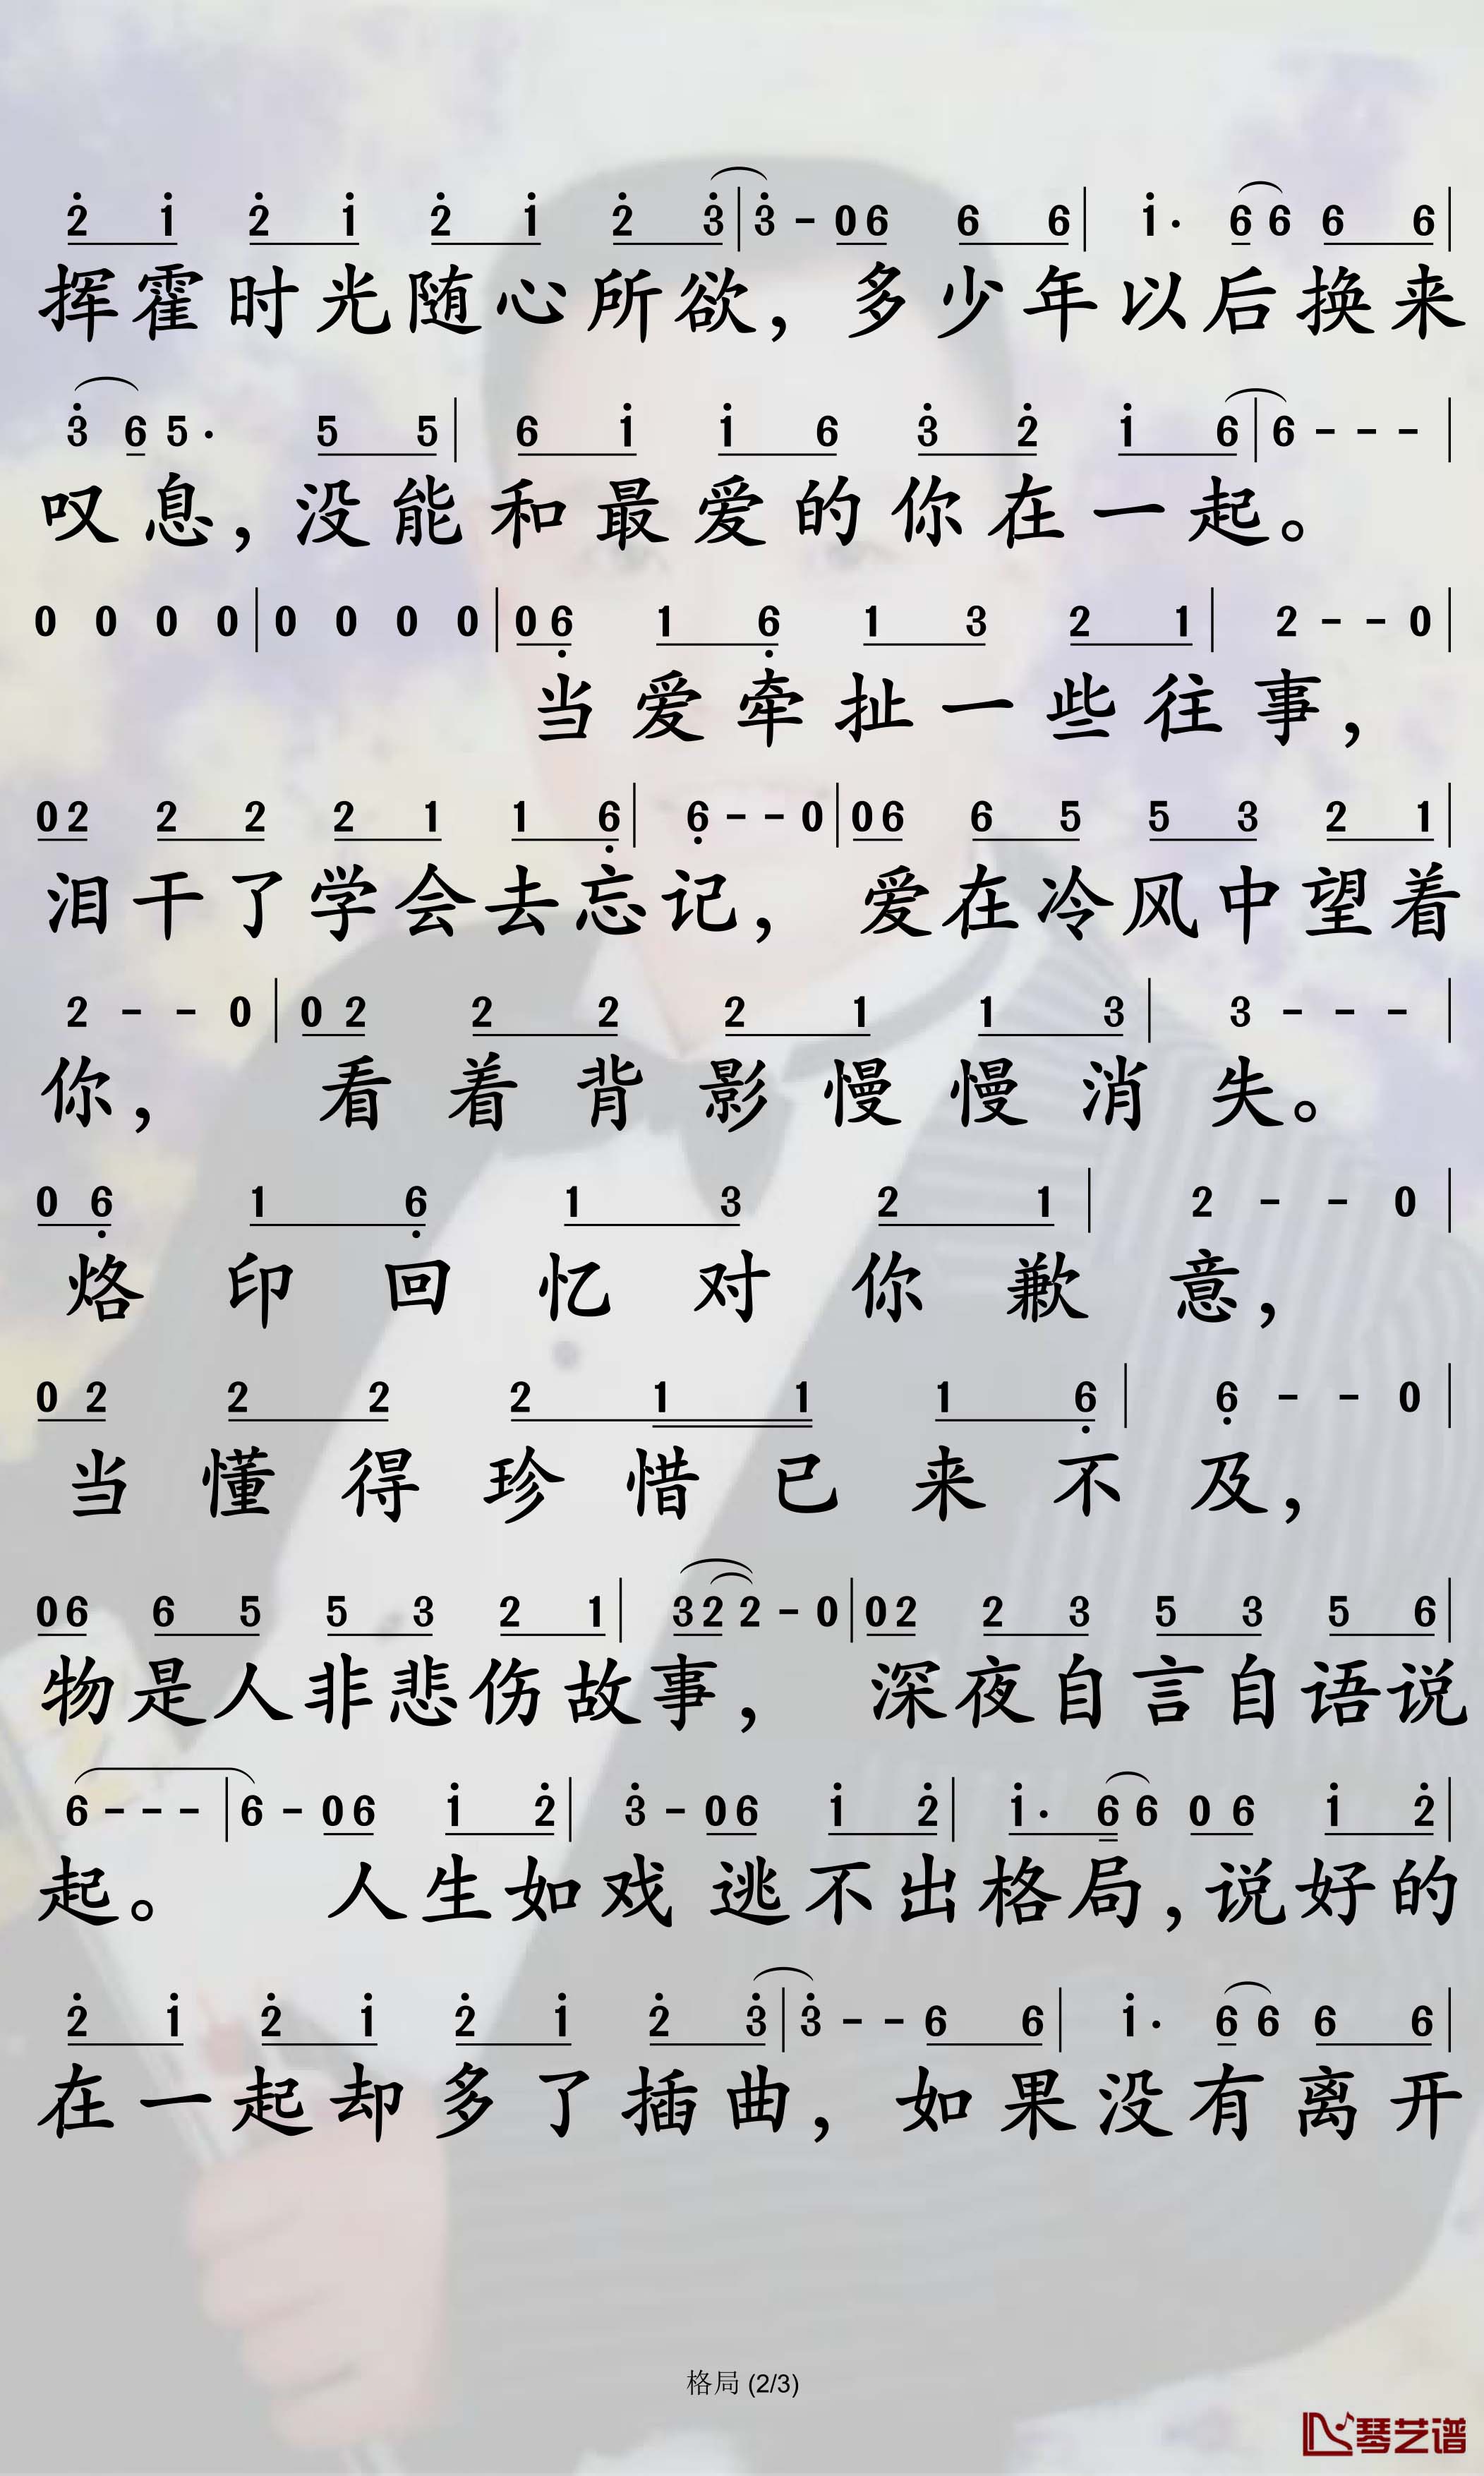 2̇ 1̇ 2̇ 1̇ 2̇ 1̇ 2̇ 3̇ | 3̇ - 0 6 6 6 | 1̇· 6 6 6 6 |
挥霍时光随心所欲，多少年以后换来
3̇ 6 5· 5 5 | 6 1̇ 1̇ 6 3̇ 2̇ 1̇ 6 | 6 - - - |
叹息，没能和最爱的你在一起。
0 0 0 0 | 0 0 0 0 | 0 6̣ 1 6̣ 1 3 2 1 | 2 - - 0 |
当爱牵扯一些往事，
0 2 2 2 2 1 1 6̣ | 6̣ - - 0 | 0 6 6 5 5 3 2 1 |
泪干了学会去忘记，爱在冷风中望着
2 - - 0 | 0 2 2 2 2 1 1 3 | 3 - - - |
你，看着背影慢慢消失。
0 6̣ 1 6̣ 1 3 2 1 | 2 - - 0 |
烙印回忆对你歉意，
0 2 2 2 2 1 1 1 6̣ | 6̣ - - 0 |
当懂得珍惜已来不及，
0 6 6 5 5 3 2 1 | 3 2 2 - 0 | 0 2 2 3 5 3 5 6 |
物是人非悲伤故事，深夜自言自语说
6 - - - | 6 - 0 6 1̇ 2̇ | 3̇ - 0 6 1̇ 2̇ | 1̇· 6 6 0 6 1̇ 2̇ |
起。人生如戏逃不出格局，说好的
2̇ 1̇ 2̇ 1̇ 2̇ 1̇ 2̇ 3̇ | 3̇ - - 6 6 | 1̇· 6 6 6 6 |
在一起却多了插曲，如果没有离开
格局 (2/3)
琴艺谱